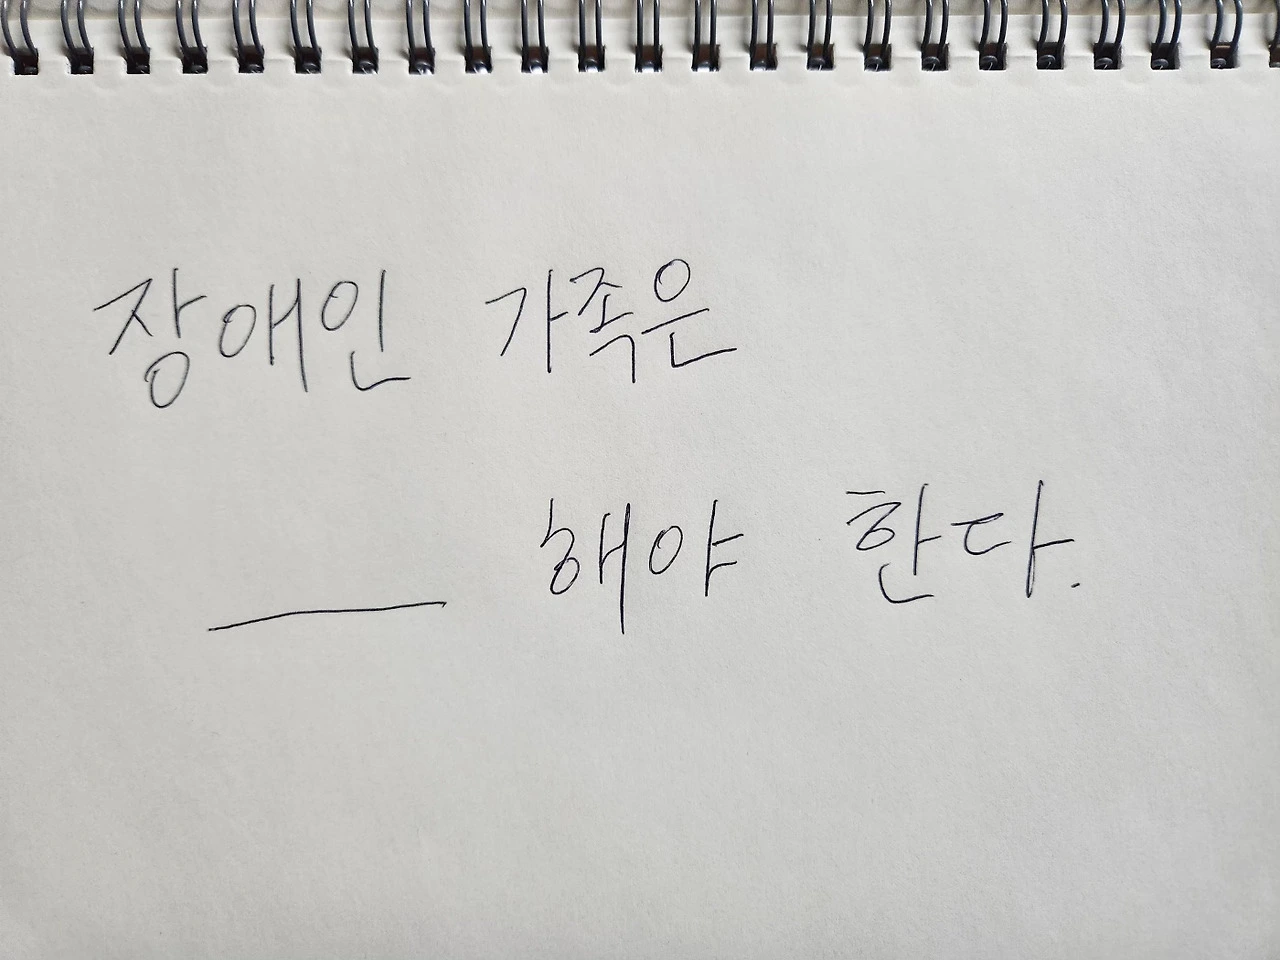 장애인 가족은
___ 해야 한다.